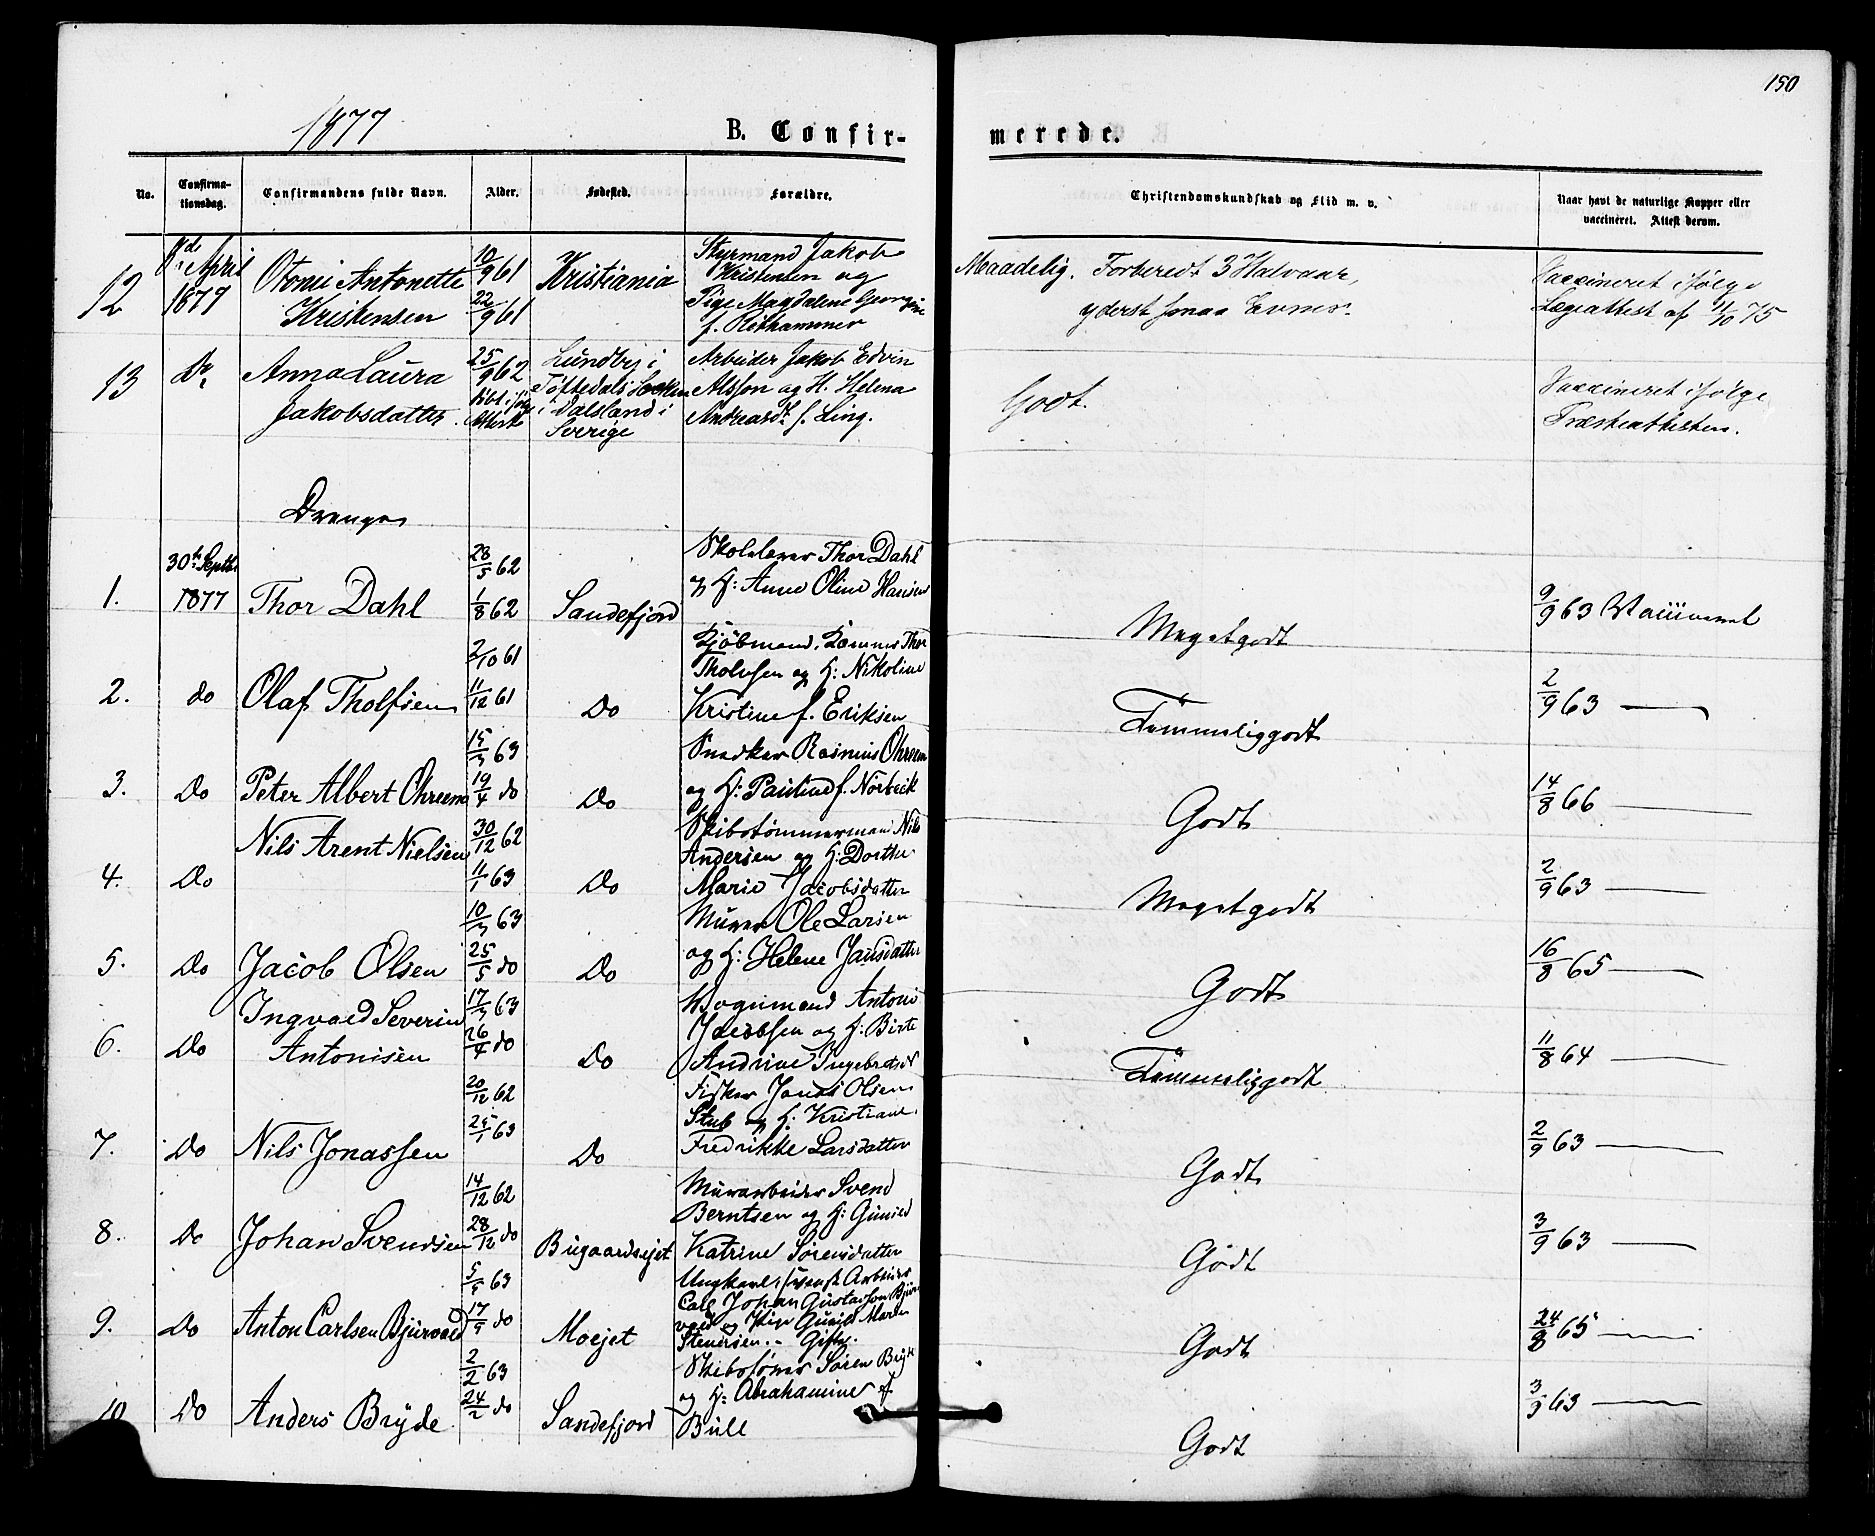 150
1877
B. Confir-
merede.
No.
Confirma-
tionsdag.
Confirmandens fulde Navn.
Alder.
Fødested.
Forældre.
Christendomskundskab og Flid m. v.
Naar havt de naturlige Kopper eller
vaccineret. Attest derom.
12
April
1877
Antonette
Kristensen
10/9 61
22/9 61
Kristiania
Styrmand Jakob
Kristensen og
Pige Magdalene Georgine
f. Røthammer
Maadelig. Forberedt 3 Halvaar,
yderst smaa Evner.
Vaccineret ifølge
Lægeattest af 11/10 75
13
Do
Anna Laura
Jakobsdatter
25/9 62
Døbt ifølge
Attest
Lundby i
Töftedals Socken
i Dalsland i
Sverige
Arbeider Jakob Edvin
Alsson og H. Helena
Andreasdt f. Ling.
Godt.
Vaccineret ifølge
Præsteattesten.
Drenge
1.
30te Septbr
1877
Thor Dahl
28/5 62
1/8 62
Sandefjord
Skolelærer Thor Dahl
og H: Anne Oline Hansen
Meget godt
9/9 63 Vaccineret
2.
do
Olaf Tholfsen
2/10 61
11/12 61
Do
Kjøbmand, Kæmner Thor
Tholvsen og H: Nikoline
Kristine f. Eriksen
Temmelig godt
2/9 63 —
3.
Do
Peter Albert Ohreen
15/3 63
19/4 do
Do
Snedker Rasmus Ohreen
og H: Pauline f. Nørbeck
Godt
14/8 66 —
4.
Do
Nils Arent Nielsen
30/12 62
11/1 63
Do
Skibstømmermand Nils
Andersen og H: Dorthe
Marie Jacobsdatter
Meget godt
2/9 63 —
5.
Do
Jacob Olsen
10/3 63
25/5 do
Do
Murer Ole Larsen
og H: Helene Jansdatter
Godt
16/8 65 —
6.
Do
Ingvald Severin
Antonisen
17/3 63
26/4 do
Do
Vognmand Antoni
Jacobsen og H: Birte
Andrine Ingebretsd
Temmelig godt
11/8 64 —
7.
Do
Nils Jonassen
20/12 62
25/1 63
Do
Fisker Jonas Olsen
Stub og H: Kristiane
Fredrikke Larsdatter
Godt
2/9 63 —
8.
Do
Johan Svendsen
14/12 62
28/12 do
Bugaardsejet
Murarbeider Svend
Berntsen og H: Gunild
Katrine Sørensdatter
Godt
3/9 63 —
9.
Do
Anton Carlsen Bjurvald
63
do
Moejet
Ungkarl, svensk Arbeider
Carl Johan Gustavson Bjur
vald og Pige Gunild Maren
Stenersen. - Gifte.
Godt
24/8 65 —
10
Do
Anders Bryde
2/2 63
24/2 do
Sandefjord
Skibsfører Søren Bryde
og H: Abrahamine f.
Bull
Godt
3/9 63 —